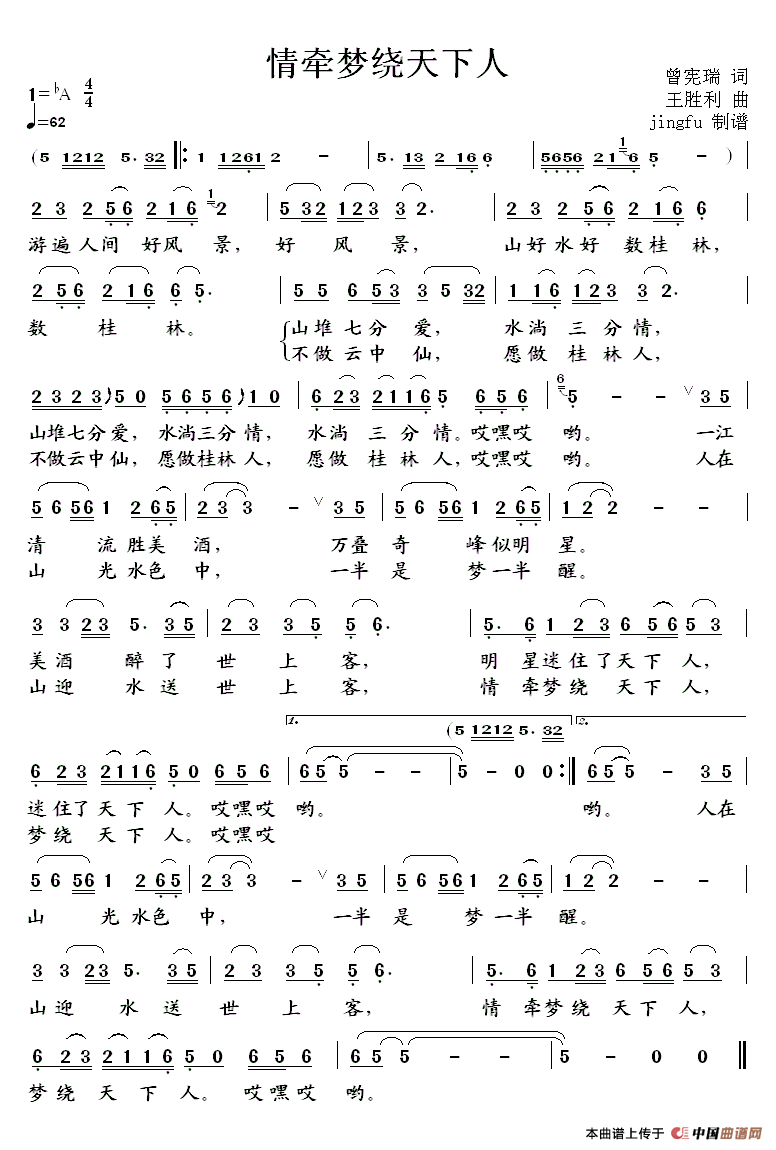 情牵梦绕天下人
1=♭A 4/4
♩=62
曾宪瑞 词
王胜利 曲
jingfu 制谱
(5 1212 5· 32 ‖: 1 1261 2 - | 5· 13 2 16 6 | 5656 21 1 6 5 - ) |
2 3 2 56 2 16 1 2 | 5 32 123 3 2· | 2 3 2 56 2 16 6 |
游遍人间 好风 景， 好 风 景， 山好水好 数桂 林，
2 56 2 16 6 5· | 5 5 6 53 3 5 32 | 1 16 123 3 2· |
数 桂 林。 山堆七分 爱， 水淌 三 分情，
不做云中 仙， 愿做 桂 林人，
2323 5 0 5656 1 0 | 6 23 2116 5 656 | 6 5 - - ∨ 35 |
山堆七分爱， 水淌三分情， 水淌 三 分 情。哎嘿哎 哟。 一江
不做云中仙， 愿做桂林人， 愿做 桂 林 人，哎嘿哎 哟。 人在
5 6 56 1 2 65 | 2 3 3 - ∨ 35 | 5 6 56 1 2 65 | 1 2 2 - - |
清 流胜美 酒， 万叠 奇 峰似明 星。
山 光水色 中， 一半 是 梦一半 醒。
3 3 23 5· 35 | 2 3 3 5 5 6· | 5· 6 1 23 6 56 5 3 |
美酒 醉了 世 上 客， 明 星迷住了天下 人，
山迎 水送 世 上 客， 情 牵梦绕 天下 人，
1. (5 1212 5· 32 2.
6 23 2116 5 0 656 | 65 5 - - | 5 - 0 0 :‖ 65 5 - - 35 |
迷住了 天 下 人。 哎嘿哎 哟。 哟。 人在
梦绕 天 下 人。哎嘿哎
5 6 56 1 2 65 | 2 3 3 - ∨ 35 | 5 6 56 1 2 65 | 1 2 2 - - |
山 光水色 中， 一半 是 梦一半 醒。
3 3 23 5· 35 | 2 3 3 5 5 6· | 5· 6 1 23 6 56 5 3 |
山迎 水 送 世 上 客， 情 牵梦绕 天下 人，
6 23 2116 5 0 656 | 65 5 - - | 5 - 0 0 ‖
梦绕 天 下 人。 哎嘿哎 哟。
本曲谱上传于 中国曲谱网